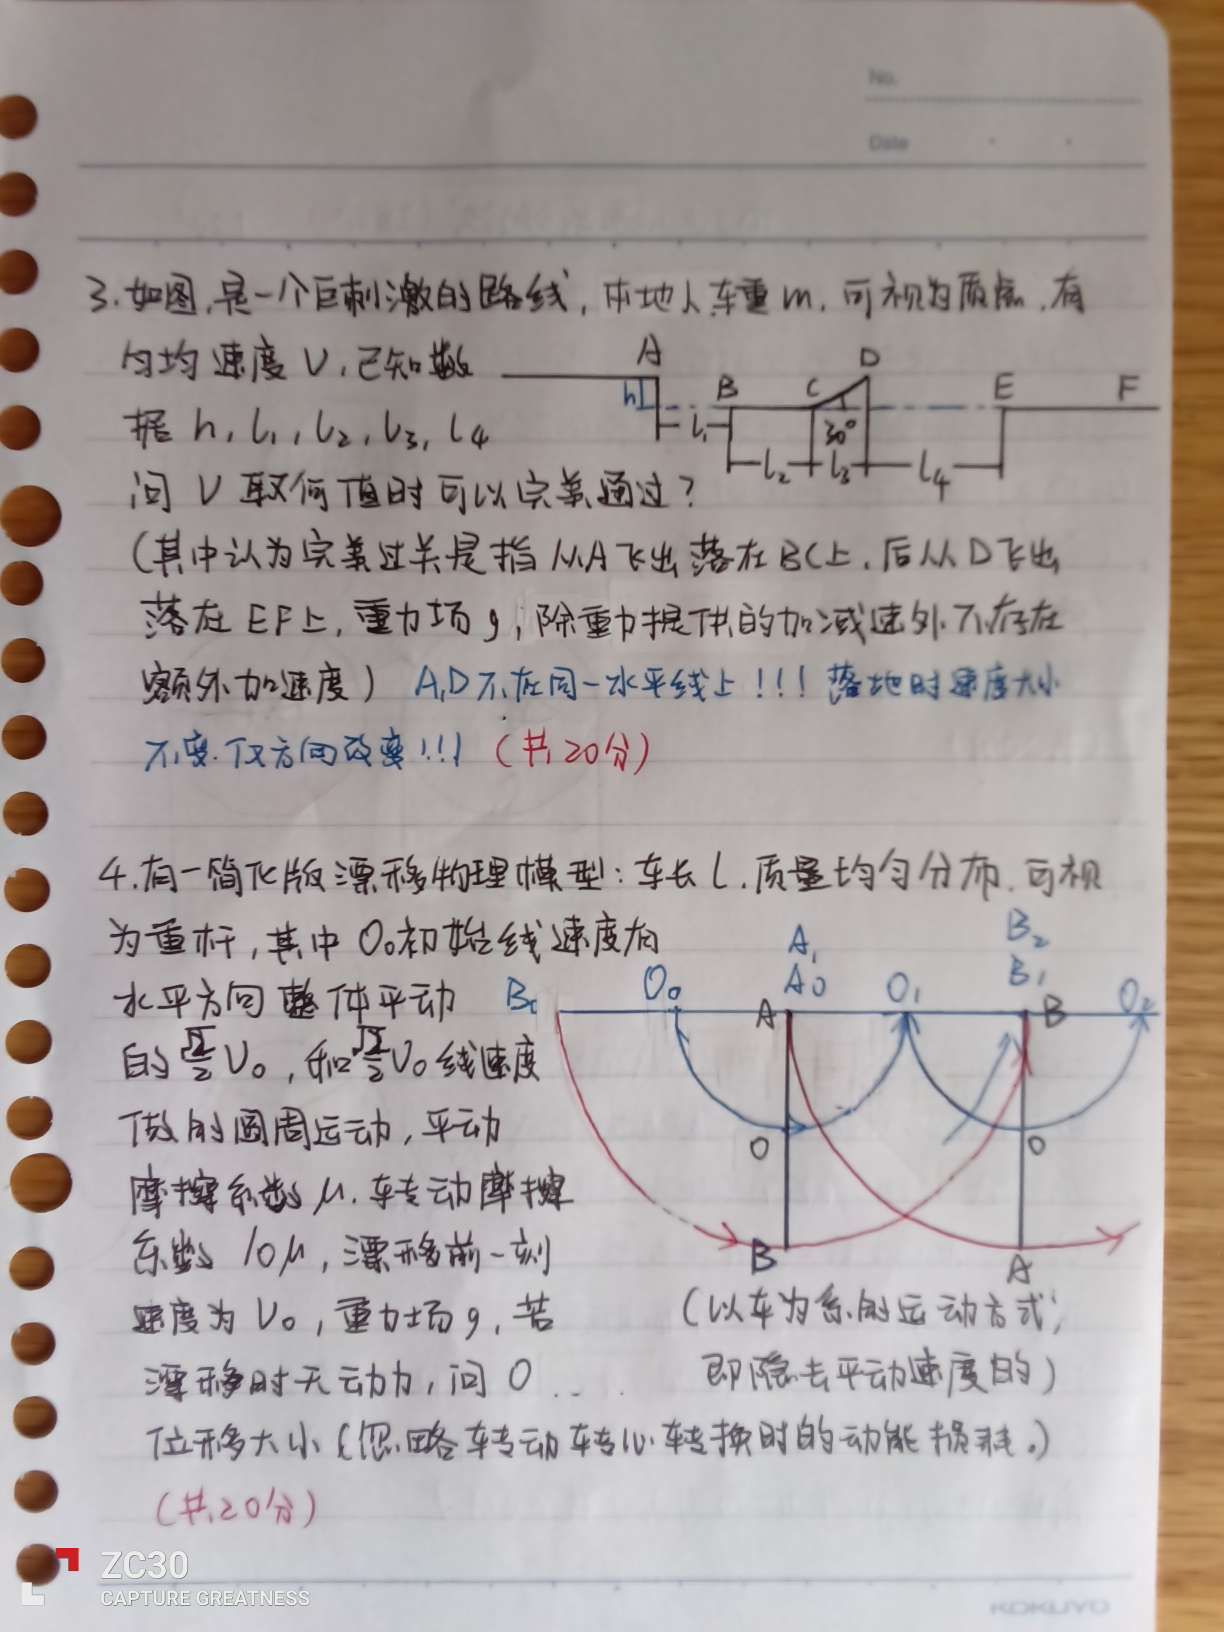 No.
Date
3.如图,是一个巨刺激的路线,本地人车重m,可视为质点,有
匀均速度V,已知数
据h,l₁,l₂,l₃,l₄
A
D
h
B
C
E
F
l₁
30°
l₂
l₃
l₄
问V取何值时可以完美通过?
(其中认为完美过关是指从A飞出落在BC上,后从D飞出
落在EF上,重力场g,除重力提供的加减速外不存在
额外加速度) A,D不在同一水平线上!!!落地时速度大小
不变.仅方向改变!!!(共20分)
4.有一简化版漂移物理模型:车长l.质量均匀分布.可视
为重杆,其中O₀初始线速度有
水平方向整体平动
的√2/2 V₀,和√2/2 V₀线速度
做的圆周运动,平动
摩擦系数μ.转动摩擦
系数10μ,漂移前一刻
速度为V₀,重力场g,若
漂移时无动力,问O
位移大小(忽略转动转心转换时的动能损耗。)
(共20分)
A₁
A₀
B₂
B₁
O₀
O₁
O₂
A
B
O
O
B
A
(以车为系的运动方式,
即隐去平动速度的)
ZC30
CAPTURE GREATNESS
KOKUYO